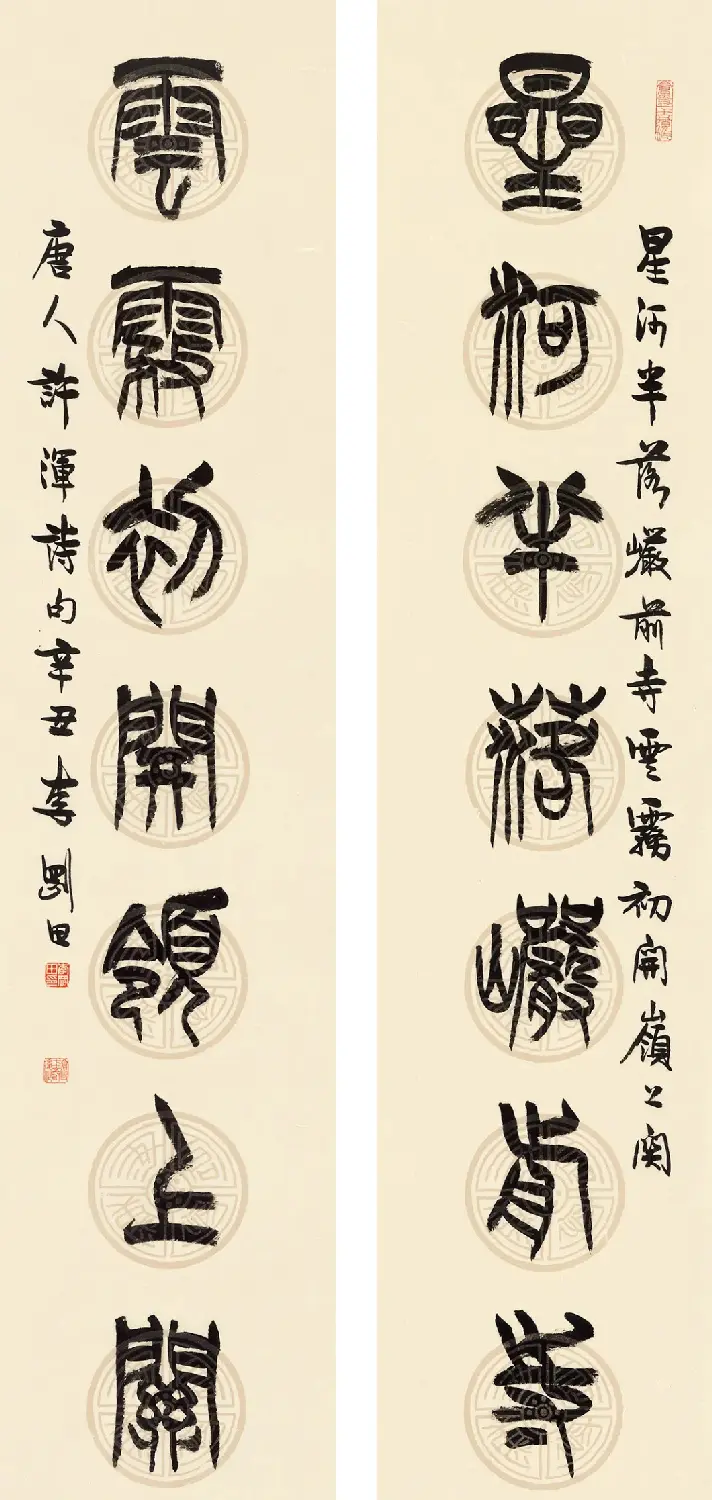 星河半落巖前寺雲霧初開嶺上關
星河半落巖前寺
雲霧初開領上關
唐人許渾詩句辛丑李剛田